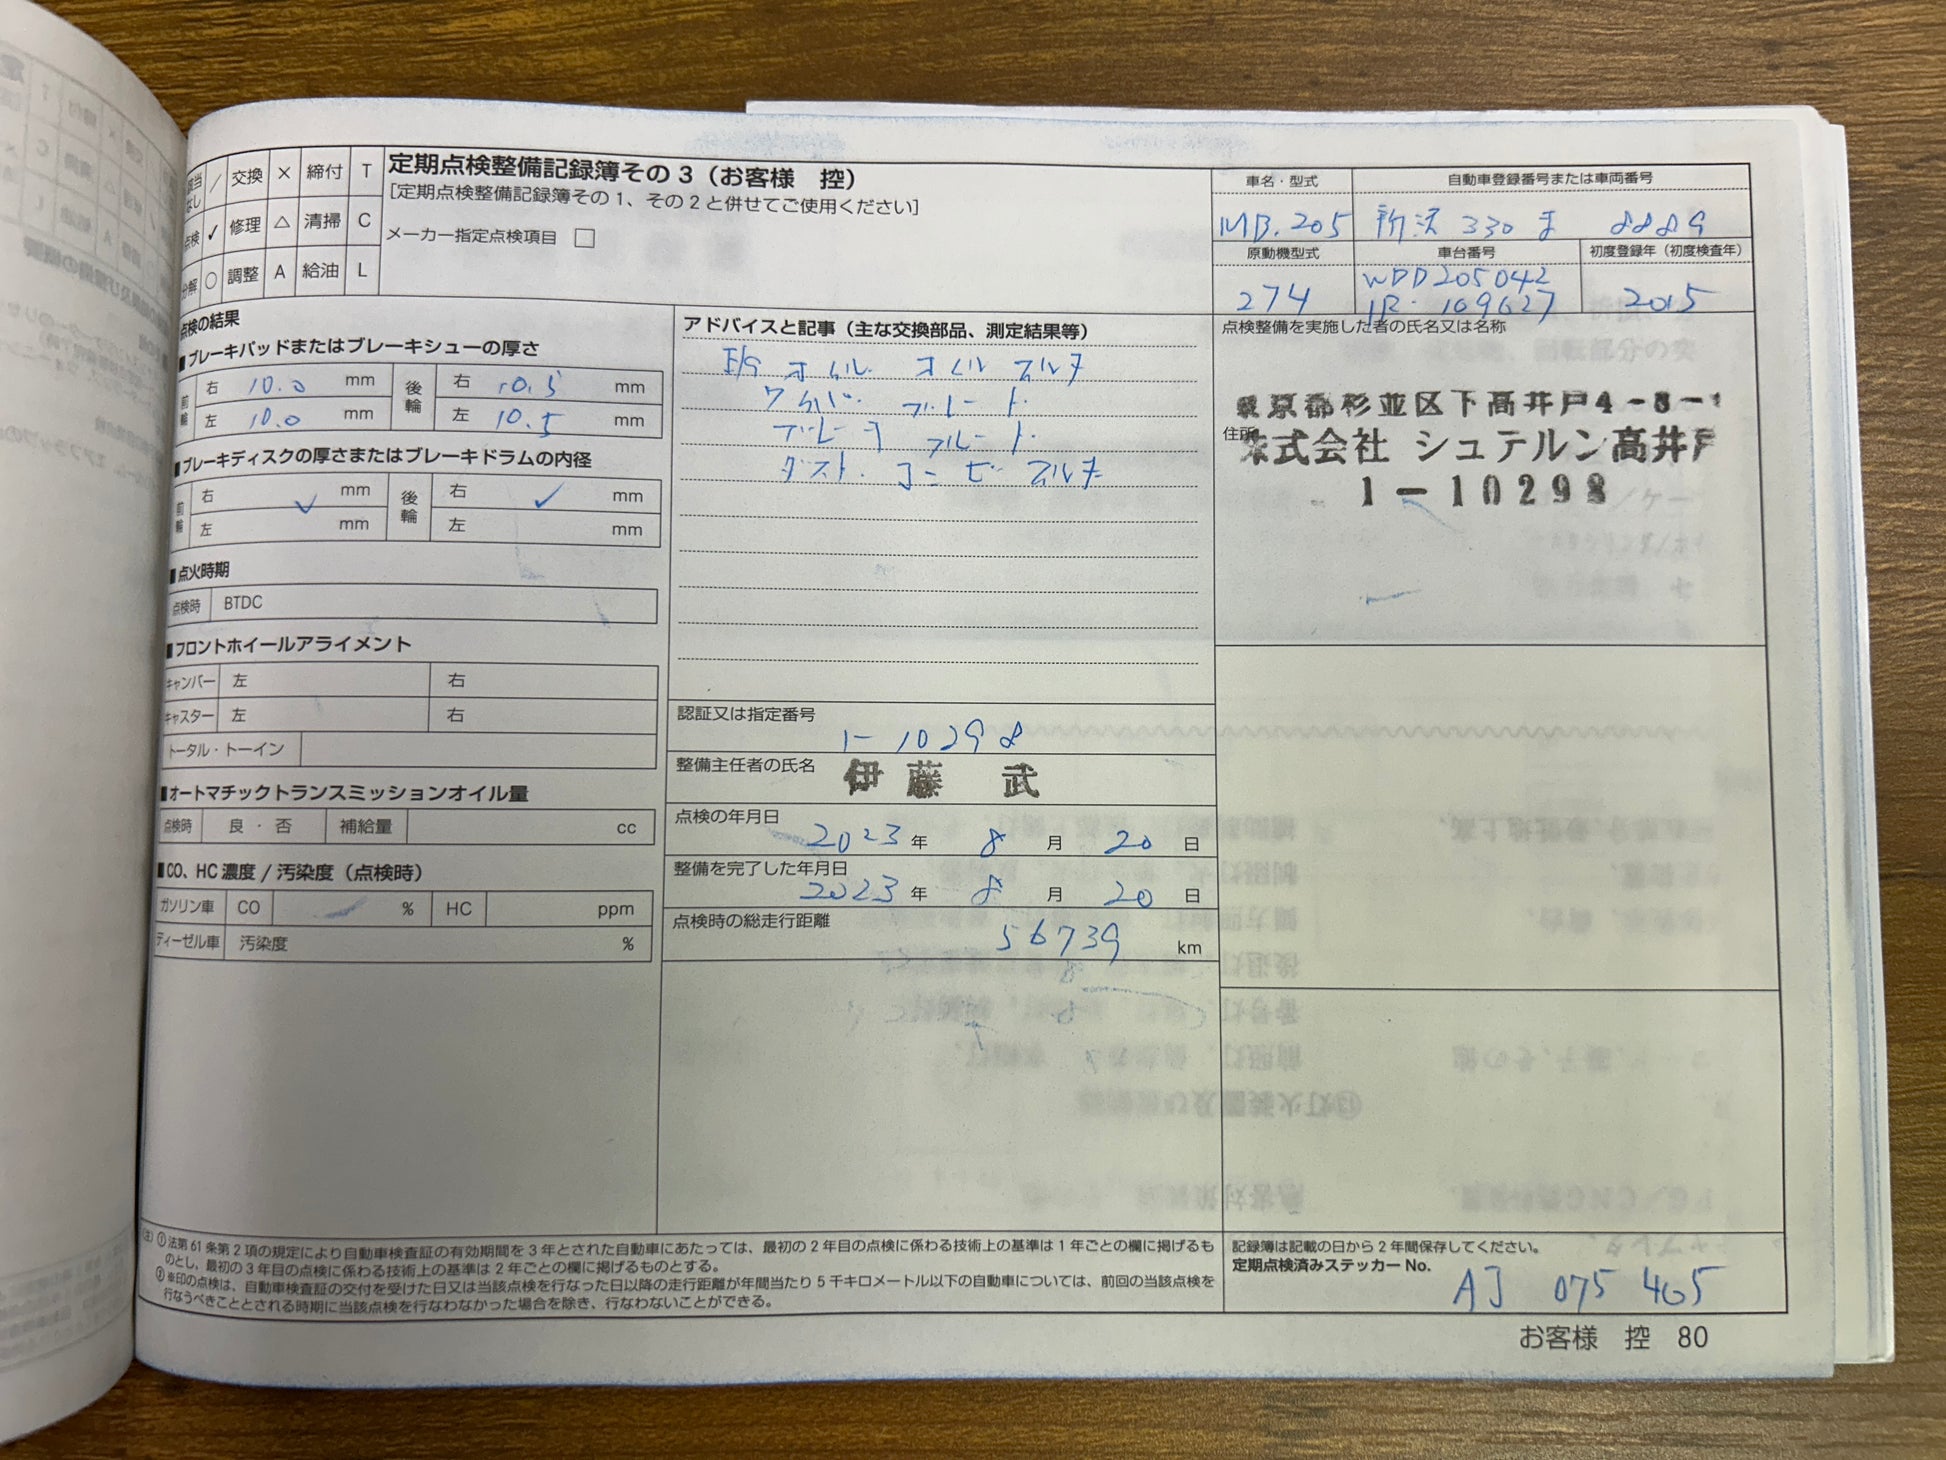 該当なし ／ 交換 × 締付 T
点検 ✓ 修理 △ 清掃 C
分解 ○ 調整 A 給油 L
定期点検整備記録簿その3（お客様　控）
［定期点検整備記録簿その1、その2と併せてご使用ください］
メーカー指定点検項目 □
車名・型式 自動車登録番号または車両番号
MB.205 330 ま 8889
原動機型式 車台番号 初度登録年（初度検査年）
274 WDD205042 2015
1R 109627
点検の結果
■ブレーキパッドまたはブレーキシューの厚さ
前輪 右 10.0 mm 後輪 右 10.5 mm
左 10.0 mm 左 10.5 mm
■ブレーキディスクの厚さまたはブレーキドラムの内径
前輪 右 ✓ mm 後輪 右 ✓ mm
左 mm 左 mm
■点火時期
点検時 BTDC
■フロントホイールアライメント
キャンバー 左 右
キャスター 左 右
トータル・トーイン
■オートマチックトランスミッションオイル量
点検時 良・否 補給量 cc
■CO、HC濃度/汚染度（点検時）
ガソリン車 CO % HC ppm
ディーゼル車 汚染度 %
アドバイスと記事（主な交換部品、測定結果等）
E/G オイル. オイルフィルタ
ワイパー ブレード
ブレーキ フルード
ダスト. コンビ フィルタ
認証又は指定番号
1-10298
整備主任者の氏名 伊藤 武
点検の年月日
2023 年 8 月 20 日
整備を完了した年月日
2023 年 8 月 20 日
点検時の総走行距離
56739 km
点検整備を実施した者の氏名又は名称
東京都杉並区下高井戸4-8-
住所
株式会社 シュテルン高井戸
1-10298
（注）①法第61条第2項の規定により自動車検査証の有効期間を3年とされた自動車にあたっては、最初の2年目の点検に係わる技術上の基準は1年ごとの欄に掲げるも
のとし、最初の3年目の点検に係わる技術上の基準は2年ごとの欄に掲げるものとする。
②※印の点検は、自動車検査証の交付を受けた日又は当該点検を行なった日以降の走行距離が年間当たり5千キロメートル以下の自動車については、前回の当該点検を
行なうべきこととされる時期に当該点検を行なわなかった場合を除き、行なわないことができる。
記録簿は記載の日から2年間保存してください。
定期点検済みステッカーNo.
AJ 075 465
お客様　控　80